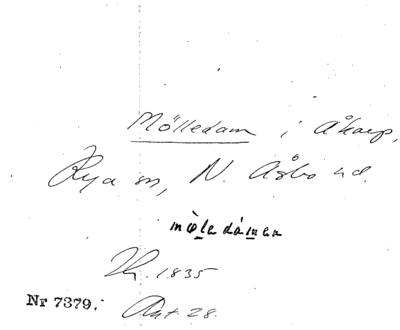 Mölledam i Åkarp,
Rya sn, N. Åsbo hd.
mø̀ledámen
1835
Nr 7379. Ant 28.